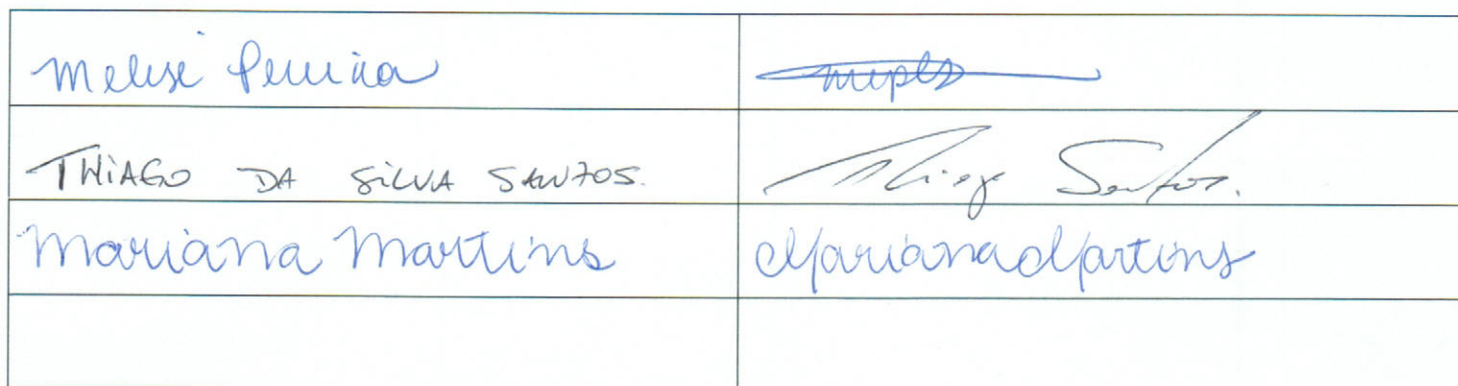 Melise Pereira
THIAGO DA SILVA SANTOS. Thiago Santos.
Mariana Martins Mariana Martins